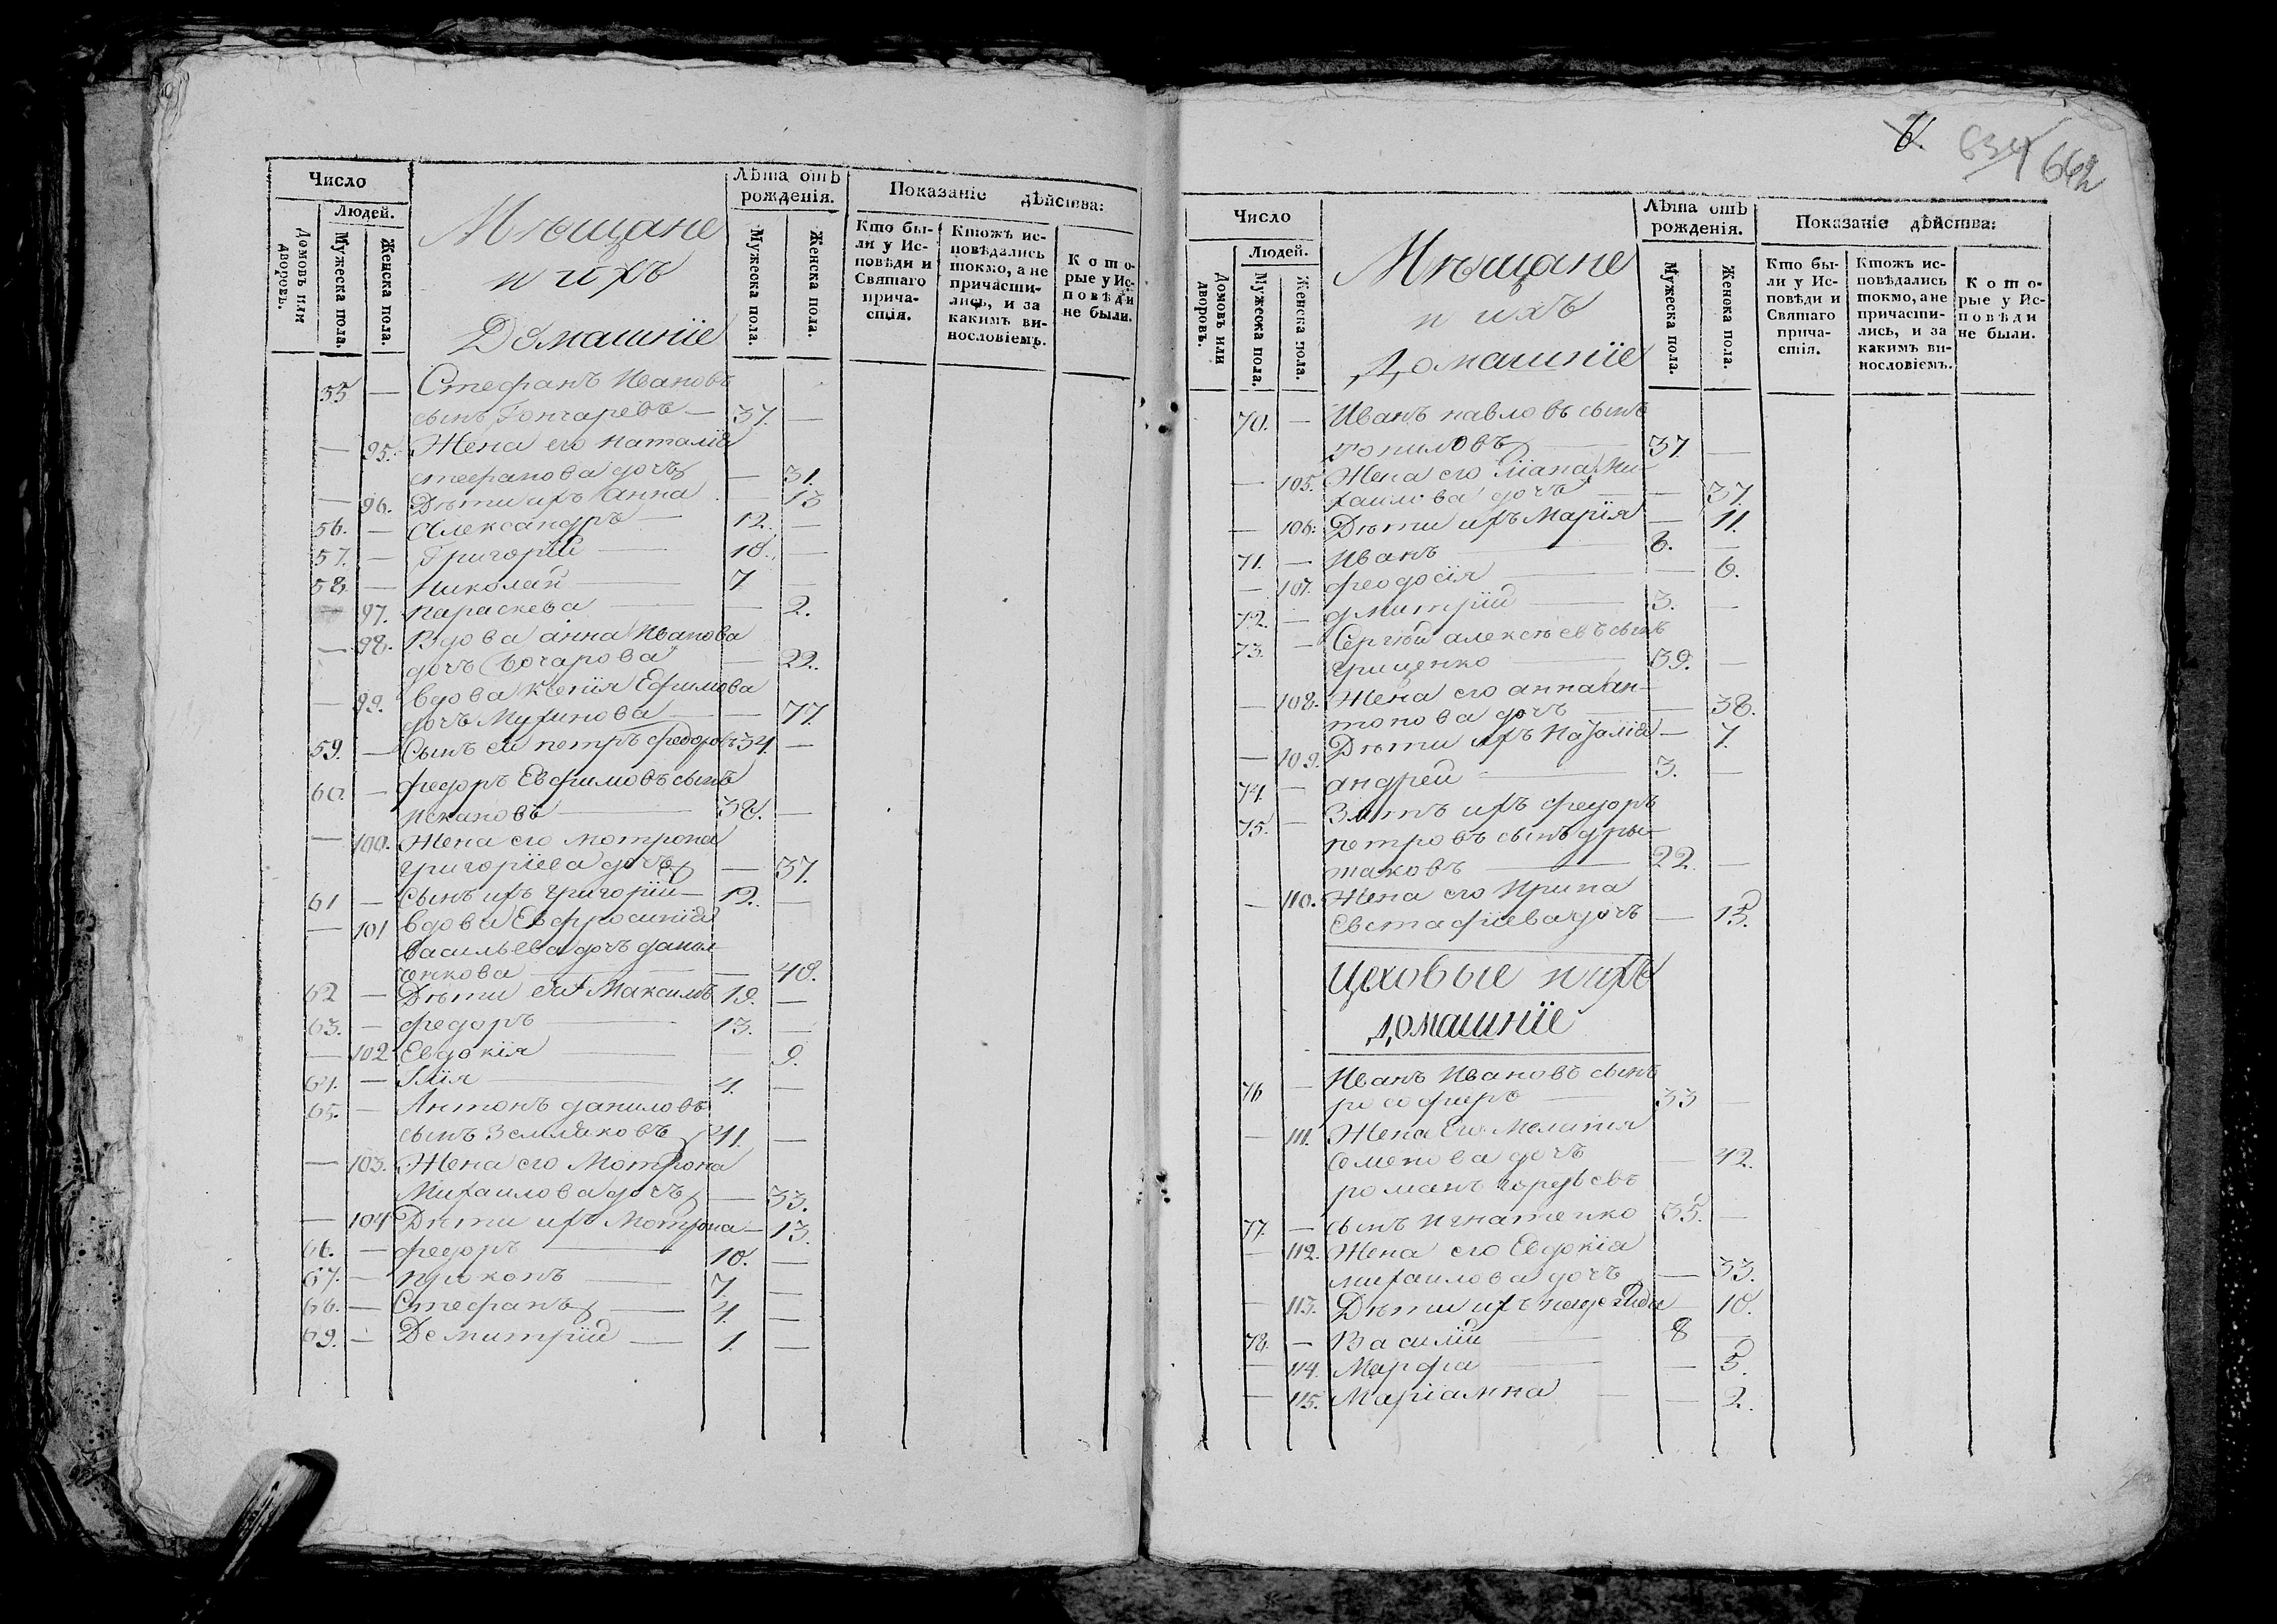 Число
Людей.
Домовъ или дворовъ.
Мужеска пола.
Женска пола.
Мѣщане
и ихъ
Домашніе
Лѣта отъ
рожденія.
Мужеска пола.
Женска пола.
Показаніе дѣйства:
Кто бы-
ли у Ис-
повѣди и
Святаго
прича-
стія.
Ктожъ ис-
повѣдались
токмо, а не
причасти-
лись, и за
какимъ ви-
нословіемъ.
К о т о-
рые у Ис-
повѣди
не были.
55 — Стефанъ Ивановъ
сынъ Гончаревъ — 37. —
— 95. Жена его Наталія
стефанова дочь — 31.
— 96. Дѣти ихъ анна — 13
56. — Александръ — 12. —
57. — Григорій — 10. —
58. — Николай — 7 —
— 97. параскева — — 2.
— 98. Вдова анна Иванова
дочь Бочарова — 22.
— 99. вдова ксенія Ефимова
дочь Мухинова — — 77.
59. — Сынъ ея петръ федоровъ 34. —
60. — федоръ Евфимовъ сынъ
Искановъ — 38. —
— 100. Жена его мотрона
григоріева дочь — 37.
61 — Сынъ ихъ григорій — 12. —
— 101 вдова Евфросинія
васильева дочь данил
ченкова — — 40.
62 — Дѣти ея Максимъ 19. —
63. — федоръ — 13. —
— 102 Евдокія — — 9.
64. — Илія — 4. —
65. — Антонъ даниловъ
сынъ Земляковъ 41. —
— 103. Жена его Мотрона
Михаилова дочь — 33.
— 104 Дѣти ихъ Мотрона — 13.
66. — федоръ — 10. —
67. — прокопъ — 7. —
68. — Стефанъ — 4. —
69. — Демитрій — 1. —
6.
634 662
Число
Людей.
Домовъ или дворовъ.
Мужеска пола.
Женска пола.
Мѣщане
и ихъ
Домашніе
Лѣта отъ
рожденія.
Мужеска пола.
Женска пола.
Показаніе дѣйства:
Кто бы-
ли у Ис-
повѣди и
Святаго
прича-
стія.
Ктожъ ис-
повѣдались
токмо, а не
причасти-
лись, и за
какимъ ви-
нословіемъ.
К о т о-
рые у Ис-
повѣди
не были.
70. — Иванъ павловъ сынъ
Топиловъ — 37. —
— 105. Жена его Ми-
хаилова дочь — — 37.
— 106. Дѣти ихъ Марія — 11.
71. — Иванъ — 8. —
— 107. феодосія — — 6.
72. — дмитрій — 3. —
73. — Сергѣй алексѣевъ сынъ
Грищенко — 39. —
— 108. Жена его анна ан-
тонова дочь — — 38.
— 109. Дѣти ихъ Наталія — 7.
74. — андрей — 3. —
75. — Зять ихъ федоръ
петровъ сынъ
таковъ — 22. —
— 110. Жена его Ирина
Евстафіева дочь — 15.
Цеховые и ихъ
домашніе
76 — Иванъ Ивановъ сынъ
— 33 —
— 111. Жена Его Меланія
Семенова дочь — 42.
романъ гордѣевъ
77. — сынъ Игнатенко 35. —
— 112. Жена его Евдокія
михаилова дочь — 33.
— 113. Дѣти ихъ надежда — 10.
78. — Василій — 8 —
— 114. Марфа — — 5.
— 115. Маріамна — — 2.